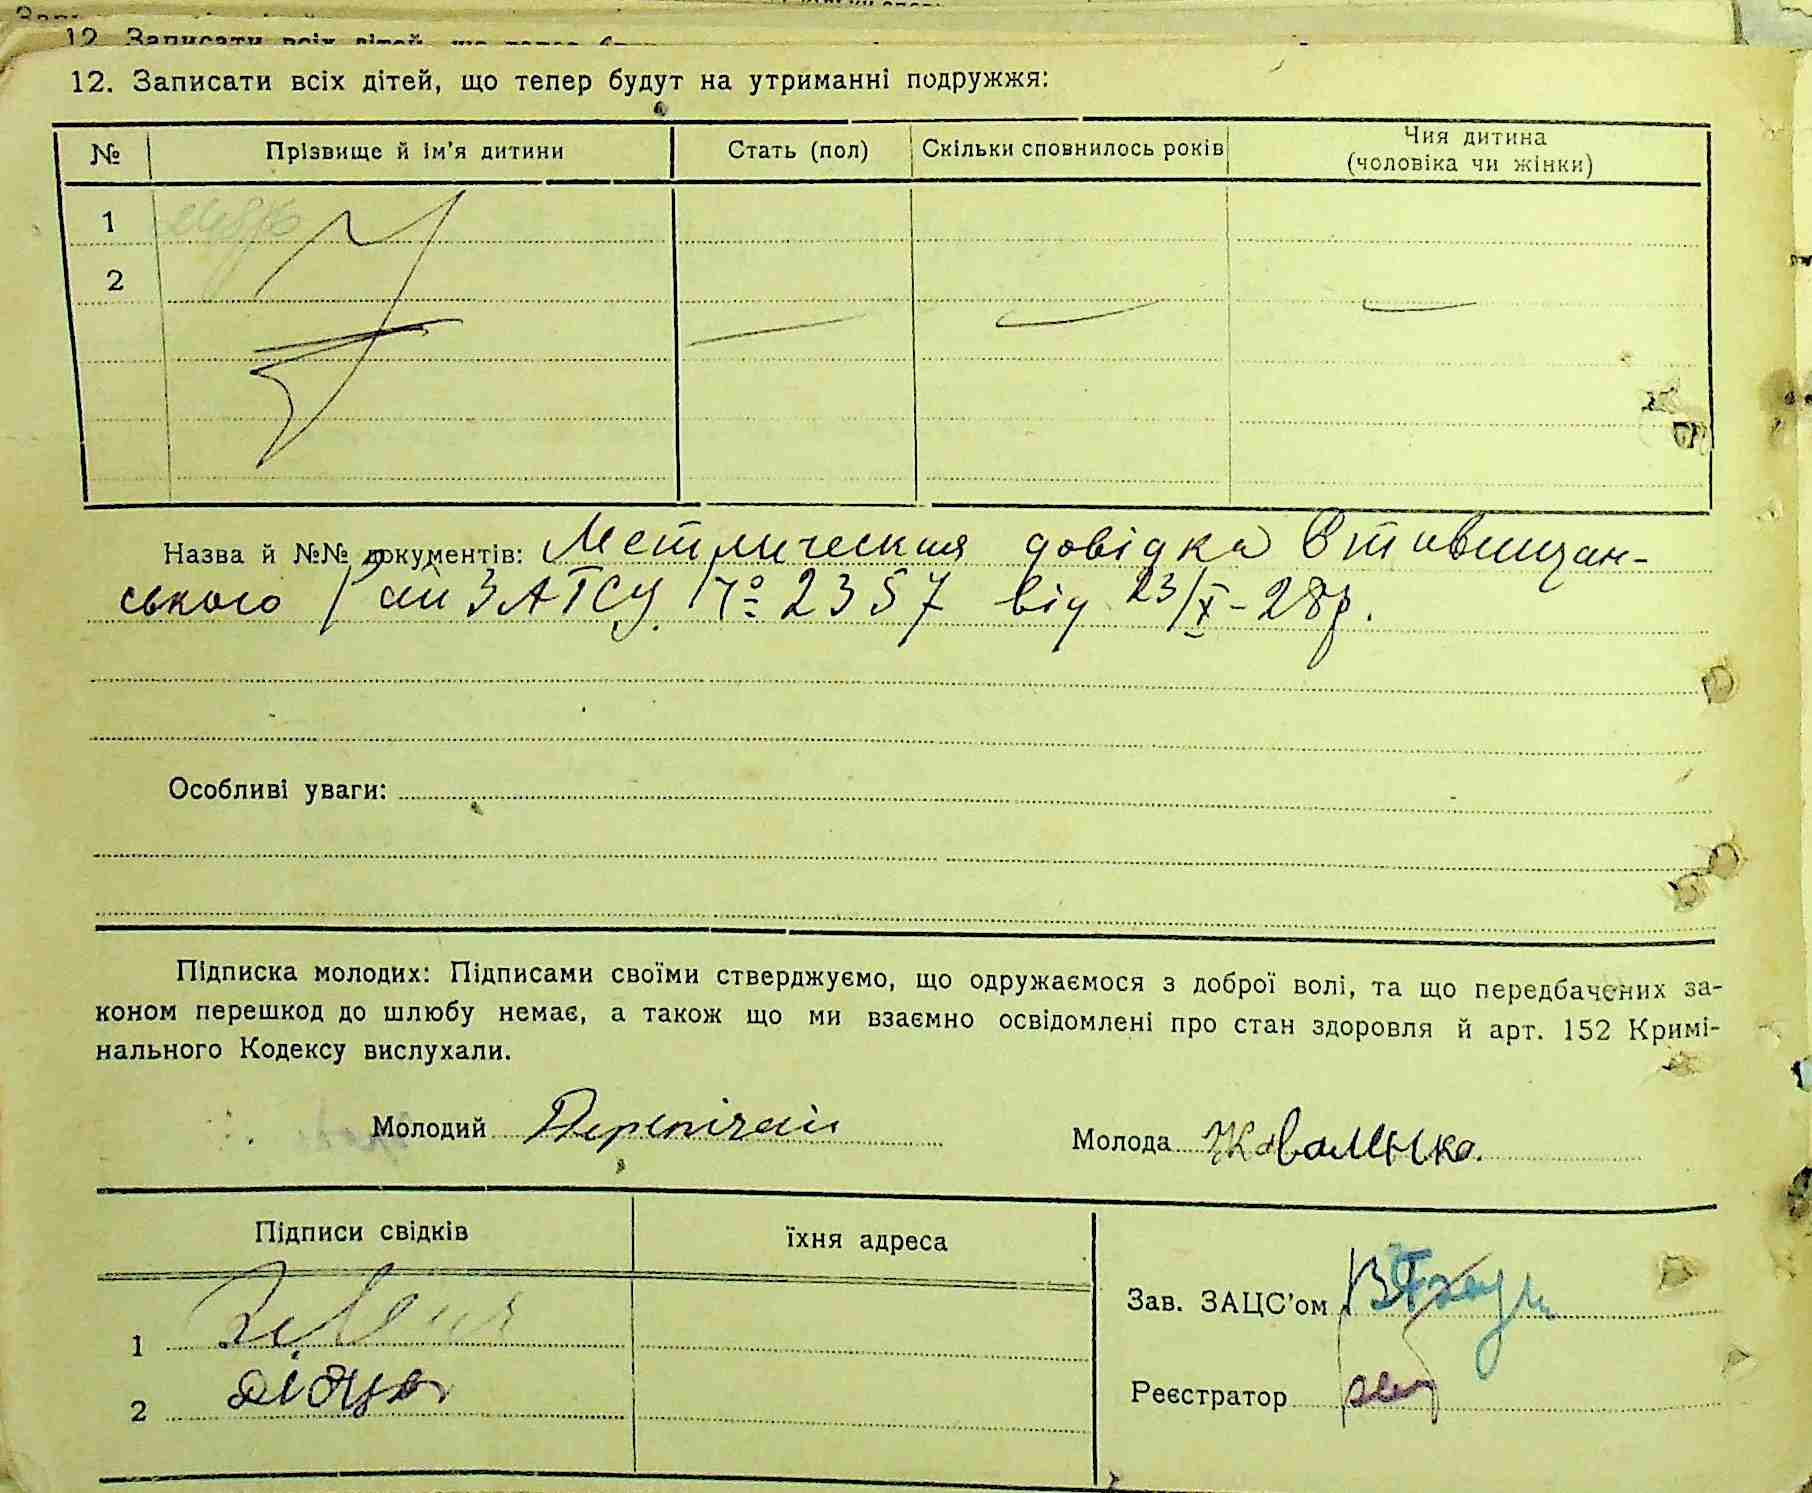 12. Записати всіх дітей, що тепер
12. Записати всіх дітей, що тепер будут на утриманні подружжя:
№ Прізвище й ім'я дитини Стать (пол) Скільки сповнилось років Чия дитина
(чоловіка чи жінки)
1
2
Назва й №№ документів: Метрическая довідка Ставищан-
ського РайЗАГСУ № 2357 від 23/X-28р.
Особливі уваги:
Підписка молодих: Підписами своїми стверджуємо, що одружаємося з доброї волі, та що передбачених за-
коном перешкод до шлюбу немає, а також що ми взаємно освідомлені про стан здоровля й арт. 152 Кримі-
нального Кодексу вислухали.
Молодий Молода Коваленко.
Підписи свідків їхня адреса
Зав. ЗАЦС'ом
1
Реєстратор
2